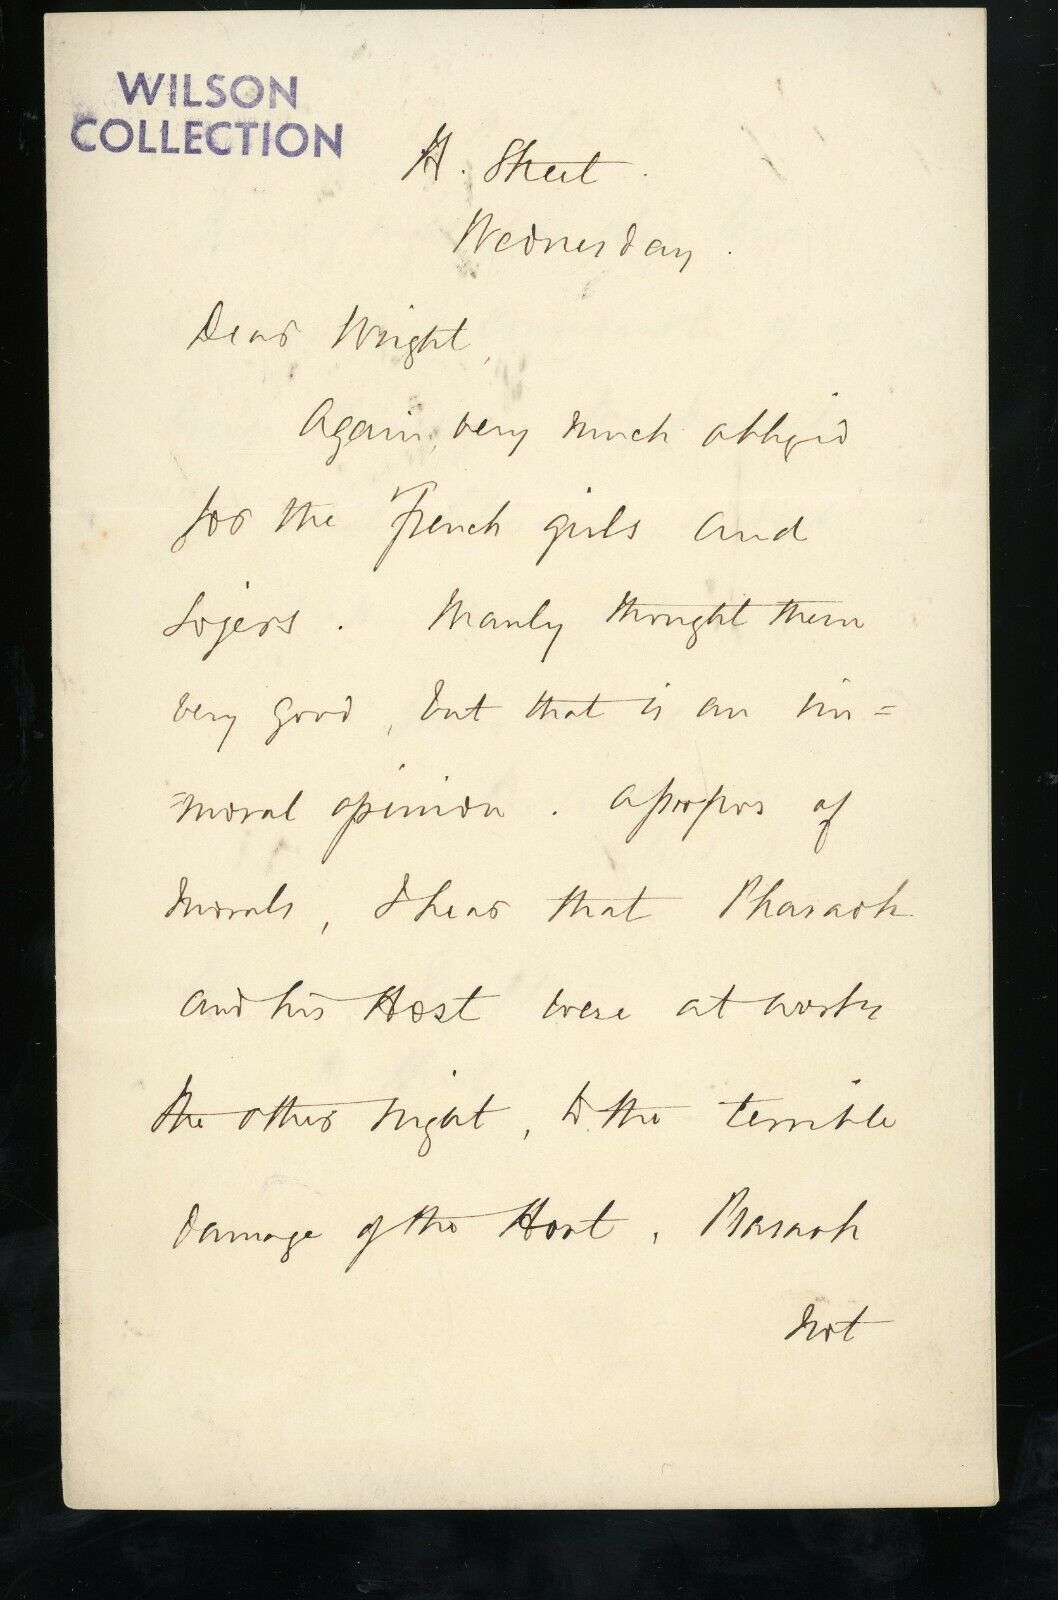 WILSON
COLLECTION
H. Street.
Wednesday.
Dear Wright,
Again, very much oblig'd
for the French girls and
Sojers. Manly thought them
very good, but that is an im=
=moral opinion. Apropos of
morals, I hear that Pharaoh
and his Host were at work
the other night, to the terrible
damage of the Host, Pharaoh
not